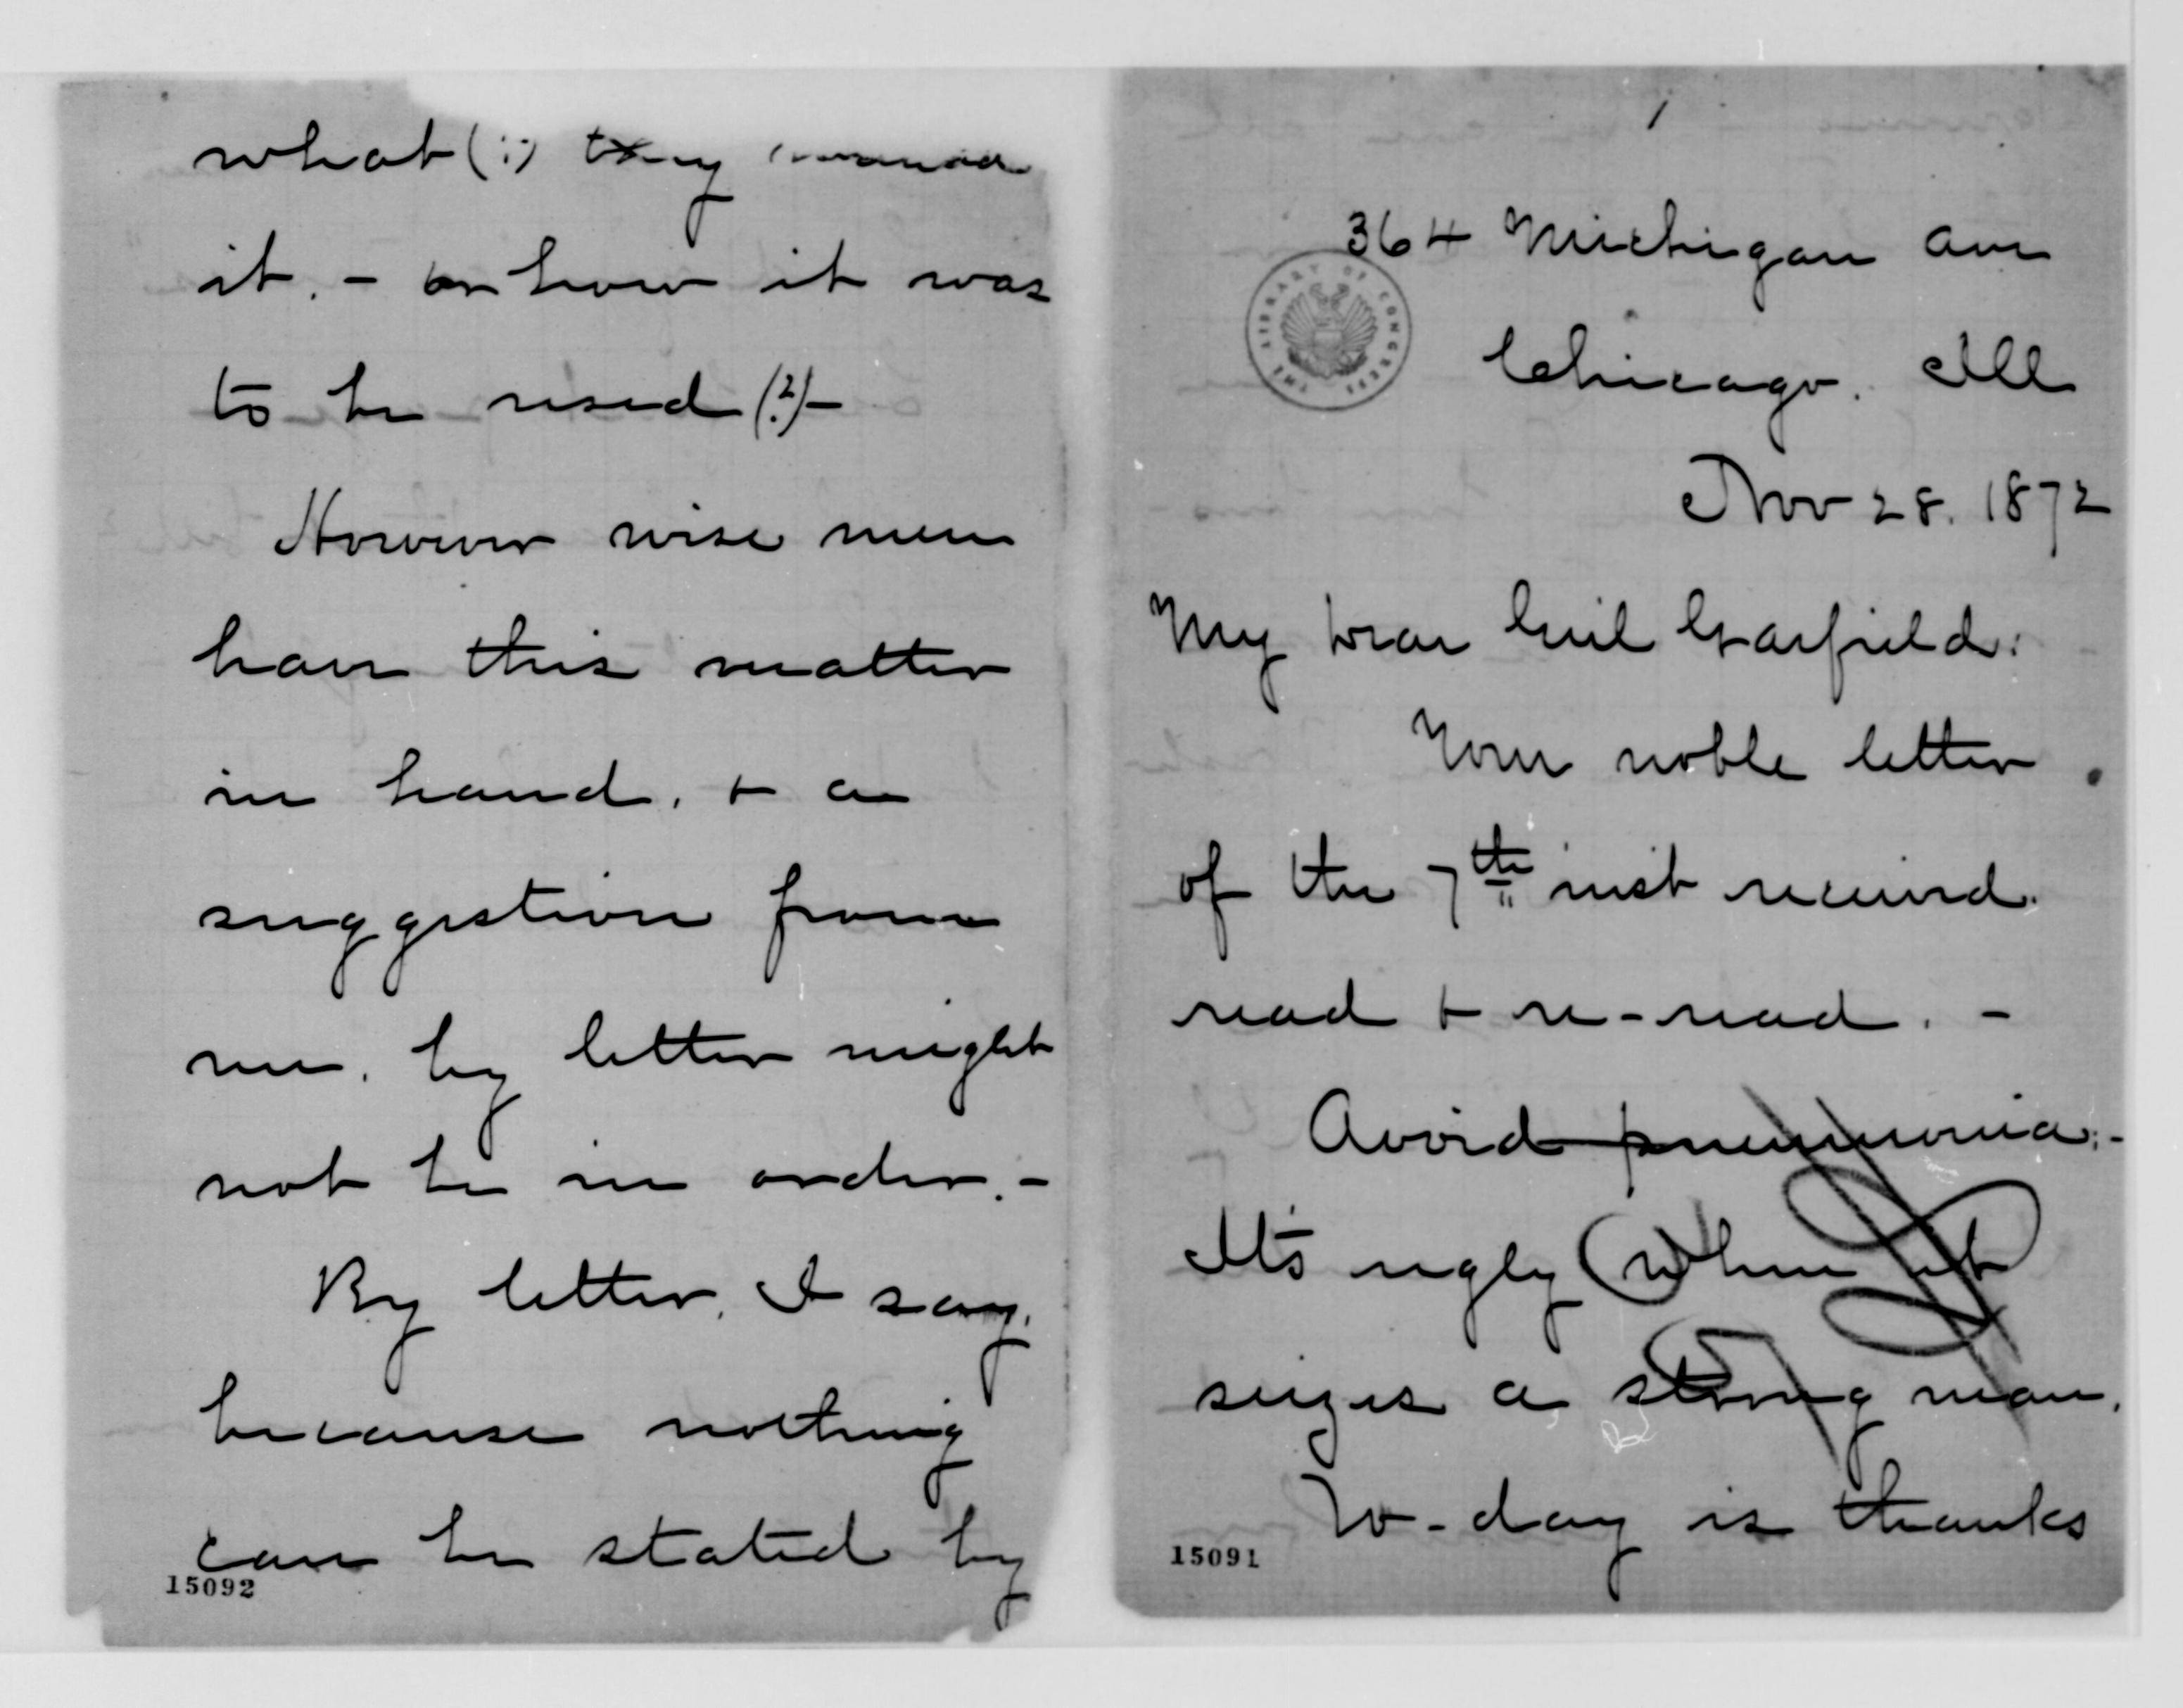 what (?) they
it. - or how it was
to be used (?) -
However wise men
have this matter
in hand, + a
suggestion from
me, by letter might
not be in order. -
By letter, I say,
because nothing
can be stated by
15092
1
364 Michigan Ave
THE LIBRARY OF CONGRESS
Chicago. Ill
Nov 28. 1872
My Dear Genl Garfield:
Your noble letter
of the 7th inst received.
read + re-read. -
Avoid pneumonia. -
It's ugly when it
seizes a strong man.
To-day is thanks
15091